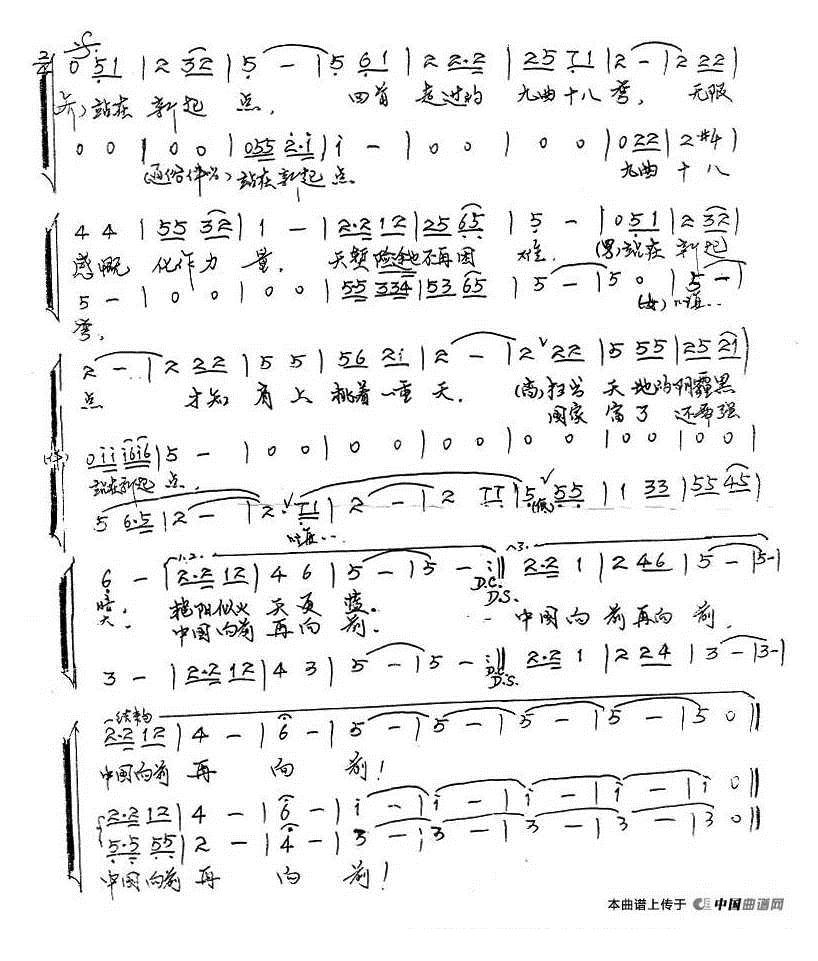 0 5 1 | 2 3 2 | 5 - | 5 6 1 | 2 2·2 | 2 5 7 1 | 2 - | 2 2 2 |
齐)站在 新起 点, 回首 走过的 九曲十八 弯, 无限
0 0 | 0 0 | 0 5 5 2·i | i - | 0 0 | 0 0 | 0 2 2 | 2 #4
站在新起 点 九曲 十 八
4 4 | 5 5 3 2 | 1 - | 2·2 1 2 | 2 5 6 5 | 5 - | 0 5 1 | 2 3 2 |
感慨 化作力 量, 天堑险途也不再困 难. (男)站在 新起
5 - | 0 0 | 0 0 | 5 5 3 3 4 | 5 3 6 5 | 5 - | 5 0 | 5 - |
弯, (女)
2 - | 2 2 2 | 5 5 | 5 6 2 i | 2 - | 2 ∨ 2 2 | 5 5 5 | 2 5 2 1 |
点 才知 肩上 挑着一重 天. (高)扫当 天地的阴霾黑
国家 富了 还要强
0 i i i 6 i 6 | 5 - | 0 0 | 0 0 | 0 0 | 0 0 | 0 0 | 0 0 |
站在新起 点,
5 6·5 | 2 - | 2· ∨ 7 1 | 2 - | 2 7 7 | 5 ∨ 5 5 | 1 3 3 | 5 5 4 5 |
(低)
1.2.
3.
6 - | 2·2 1 2 | 4 6 | 5 - | 5 - :|| 2·2 1 | 2 4 6 | 5 - | 5 - |
D.C.
D.S.
暗. 艳阳似火 天更 蓝. - - 中国向 前再向 前,
大. 中国向前 再向 前.
3 - | 2·2 1 2 | 4 3 | 5 - | 5 - :|| 2·2 1 | 2 2 4 | 3 - | 3 - |
D.C.
D.S.
结束句
2·2 1 2 | 4 - | 6 - | 5 - | 5 - | 5 - | 5 - | 5 0 ||
中国向前 再 向 前!
2·2 1 2 | 4 - | 6 - | i - | i - | i - | i - | i 0 ||
5·5 5 5 | 2 - | 4 - | 3 - | 3 - | 3 - | 3 - | 3 0 ||
中国向前 再 向 前!
本曲谱上传于 中国曲谱网